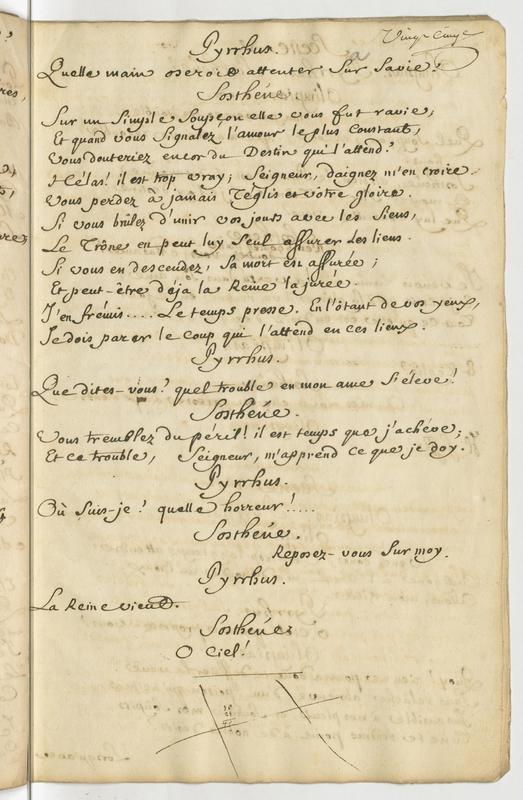 Vingt Cinq
Pyrrhus.
Quelle main oseroit attenter Sur Savie?
Sosthéne.
Sur un Simple Soupçon elle vous fut ravie;
Et quand vous Signalez l'amour le plus Constant,
Vous douteriez encor du Destin qui l'attend?
Hélas! il est trop vray; Seigneur, daignez m'en croire.
Vous perdez à jamais Téglis et votre gloire.
Si vous brûlez d'unir vos jours avec les Siens,
Le Trône en peut luy Seul assurer Les liens.
Si vous en descendez, Sa mort est assurée;
Et peut-être déja la Reine la jurée.
J'en frémis.... Le temps presse. En l'ôtant de vos yeux,
Je dois parer le coup qui l'attend en ces lieux.
Pyrrhus.
Que dites-vous? quel trouble en mon ame S'éleve!
Sosthéne.
Vous tremblez du péril! il est temps que j'achéve;
Et ce trouble, Seigneur, m'apprend ce que je doy.
Pyrrhus.
Où Suis-je? quelle horreur!....
Sosthéne.
Reposez-vous Sur moy.
Pyrrhus.
La Reine vient.
Sosthéne.
O Ciel!